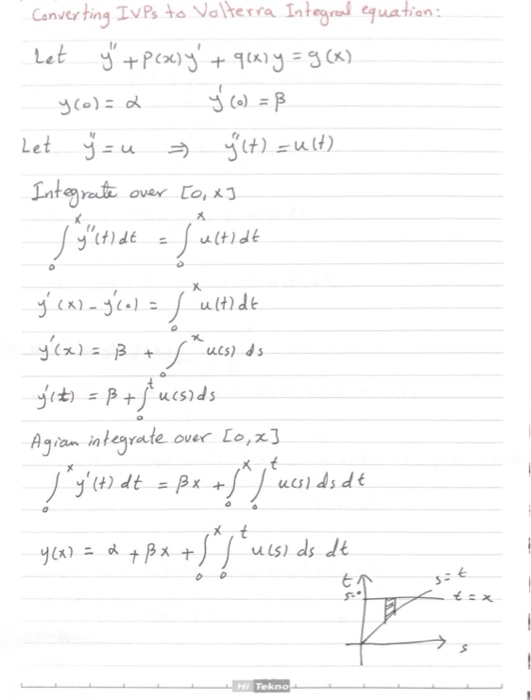 Converting IVPs to Volterra Integral equation:
Let y'' + p(x)y' + q(x)y = g(x)
y(0) = α y'(0) = β
Let y'' = u ⇒ y''(t) = u(t)
Integrate over [0, x]
∫₀ˣ y''(t) dt = ∫₀ˣ u(t) dt
y'(x) - y'(0) = ∫₀ˣ u(t) dt
y'(x) = β + ∫₀ˣ u(s) ds
y'(t) = β + ∫₀ᵗ u(s) ds
Agian integrate over [0, x]
∫₀ˣ y'(t) dt = βx + ∫₀ˣ ∫₀ᵗ u(s) ds dt
y(x) = α + βx + ∫₀ˣ ∫₀ᵗ u(s) ds dt
t s=t
t = x
s
Hi Tekno